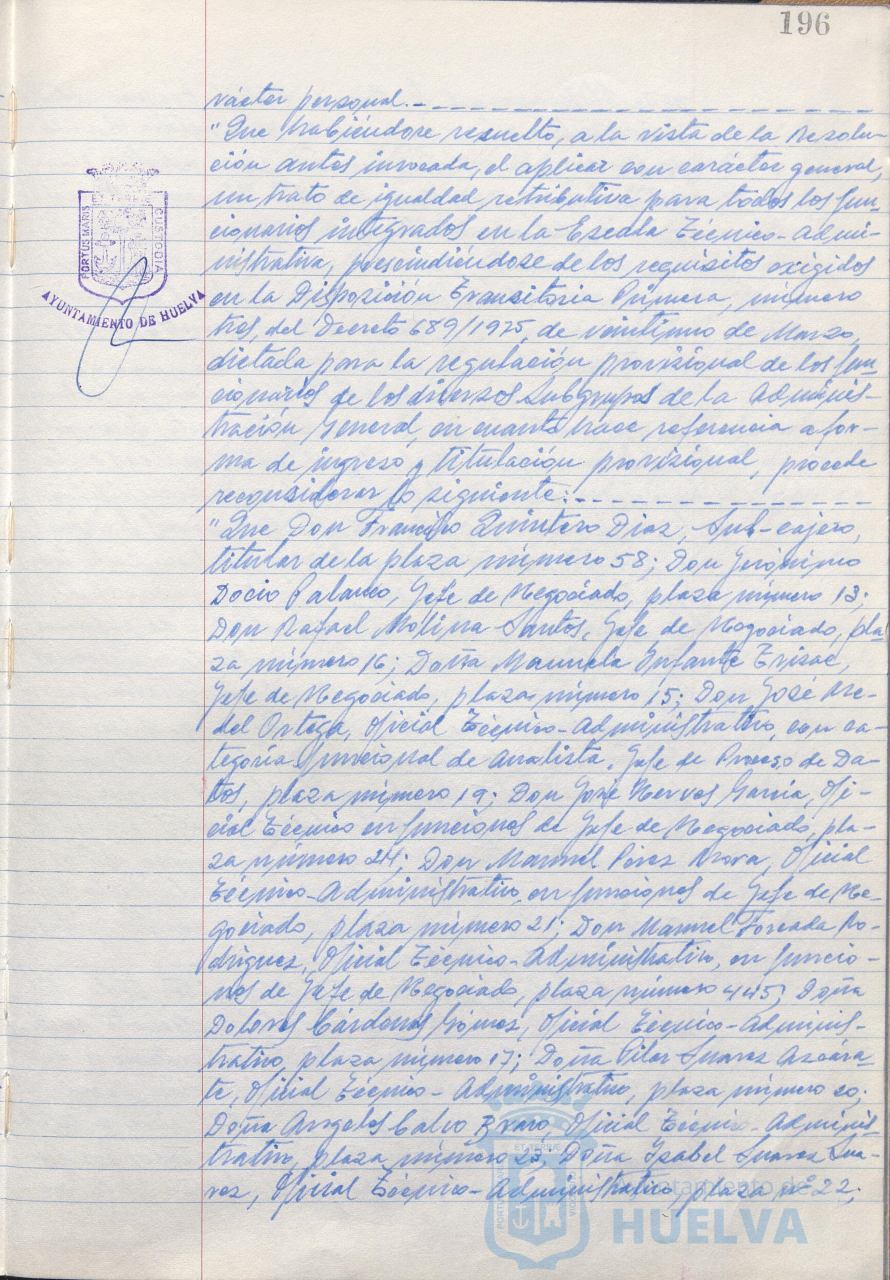 196
rácter personal.
"Que habiéndose resuelto, a la vista de la Resolu-
ción antes invocada, el aplicar con carácter general,
un trato de igualdad retributiva para todos los fun-
cionarios integrados en la Escala Técnico-Admi-
nistrativa, prescindiéndose de los requisitos exigidos
en la Disposición Transitoria Primera, número
tres, del Decreto 689/1975, de veintiuno de Marzo,
dictada para la regulación provisional de los fun-
cionarios de los diversos Subgrupos de la Adminis-
tración General, en cuanto hace referencia a for-
ma de ingreso y titulación provisional, procede
reconsiderar lo siguiente:
"Que Don Francisco Quintero Diaz, Sub-cajero,
titular de la plaza número 58; Don Jerónimo
Docio Palanco, Jefe de Negociado, plaza número 13;
Don Rafael Molina Santos, Jefe de Negociado, pla-
za número 16; Doña Manuela Infante
Jefe de Negociado, plaza número 15; Don José Me-
del Ortega, Oficial Técnico-Administrativo, con ca-
tegoría funcional de Analista, Jefe de Proceso de Da-
tos, plaza número 19; Don José Nerves García, Ofi-
cial Técnico en funciones de Jefe de Negociado, pla-
za número 24; Don Manuel Pérez Mora, Oficial
Técnico-Administrativo, en funciones de Jefe de Ne-
gociado, plaza número 21; Don Manuel Forcada Ro-
dríguez, Oficial Técnico-Administrativo, en funcio-
nes de Jefe de Negociado, plaza número 445; Doña
Dolores Cárdenas Gómez, Oficial Técnico-Adminis-
trativo, plaza número 17; Doña Pilar Suarez Azcára-
te, Oficial Técnico-Administrativo, plaza número 20;
Doña Angeles Calvo Bravo, Oficial Técnico-Adminis-
trativo, plaza número 23, Doña Isabel Suarez Sua-
rez, Oficial Técnico-Administrativo, plaza nº 22;
PORTUS MARIS CUSTODIA
AYUNTAMIENTO DE HUELVA
Ayuntamiento de
HUELVA